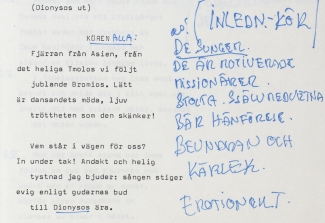 (Dionysos ut)
KÖREN ALLA:
Fjärran från Asien, från
det heliga Tmolos vi följt
jublande Bromios. Lätt
är dansandets möda, ljuv
tröttheten som den skänker!
Vem står i vägen för oss?
In under tak! Andakt och helig
tystnad jag bjuder: sången stiger
evig enligt gudarnas bud
till Dionysos ära.
(INLEDN.-KÖR
DE SJUNGER.
DE ÄR MOTIVERADE
MISSIONÄRER.
STOLTA. SJÄLVMEDVETNA
BÄR HÄNFÖRELSE.
BEUNDRAN OCH
KÄRLEK.
EMOTIONELLT.